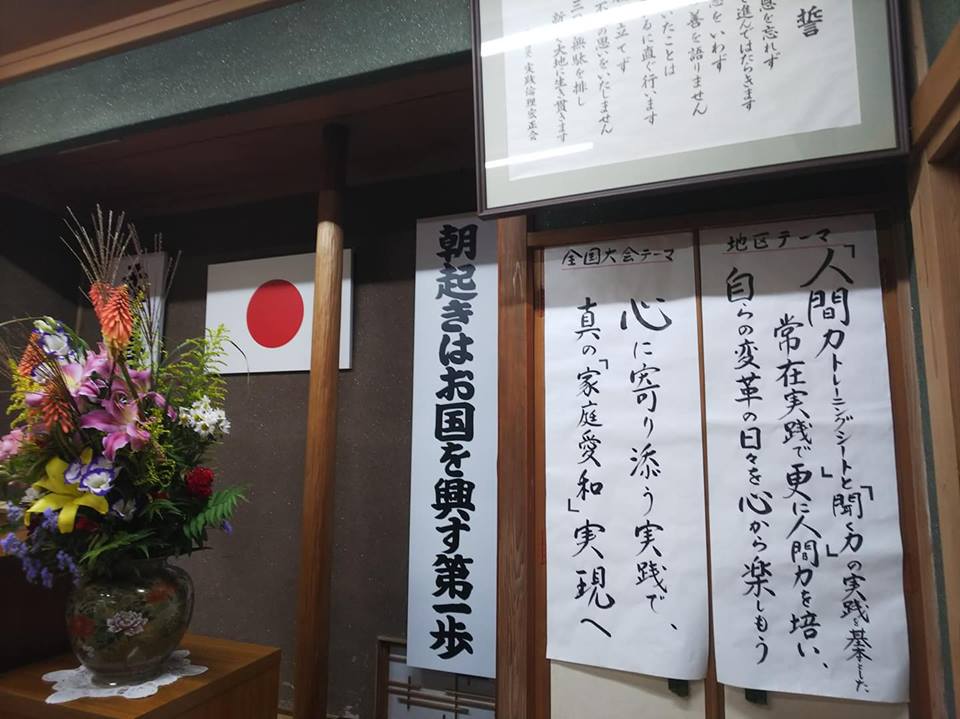 誓
恩を忘れず
進んではたらきます
をいわず
善を語りません
いたことは
るに直ぐ行います
立てず
の思いをいたしません
三つの無駄を排し
大地に生き貫きます
実践倫理宏正会
地区テーマ
「人間力トレーニングシート」と「聞く力」の実践を基本とした
常在実践で更に人間力を培い、
自らの変革の日々を心から楽しもう
全国大会テーマ
心に寄り添う実践で、
真の「家庭愛和」実現へ
朝起きはお国を興す第一歩